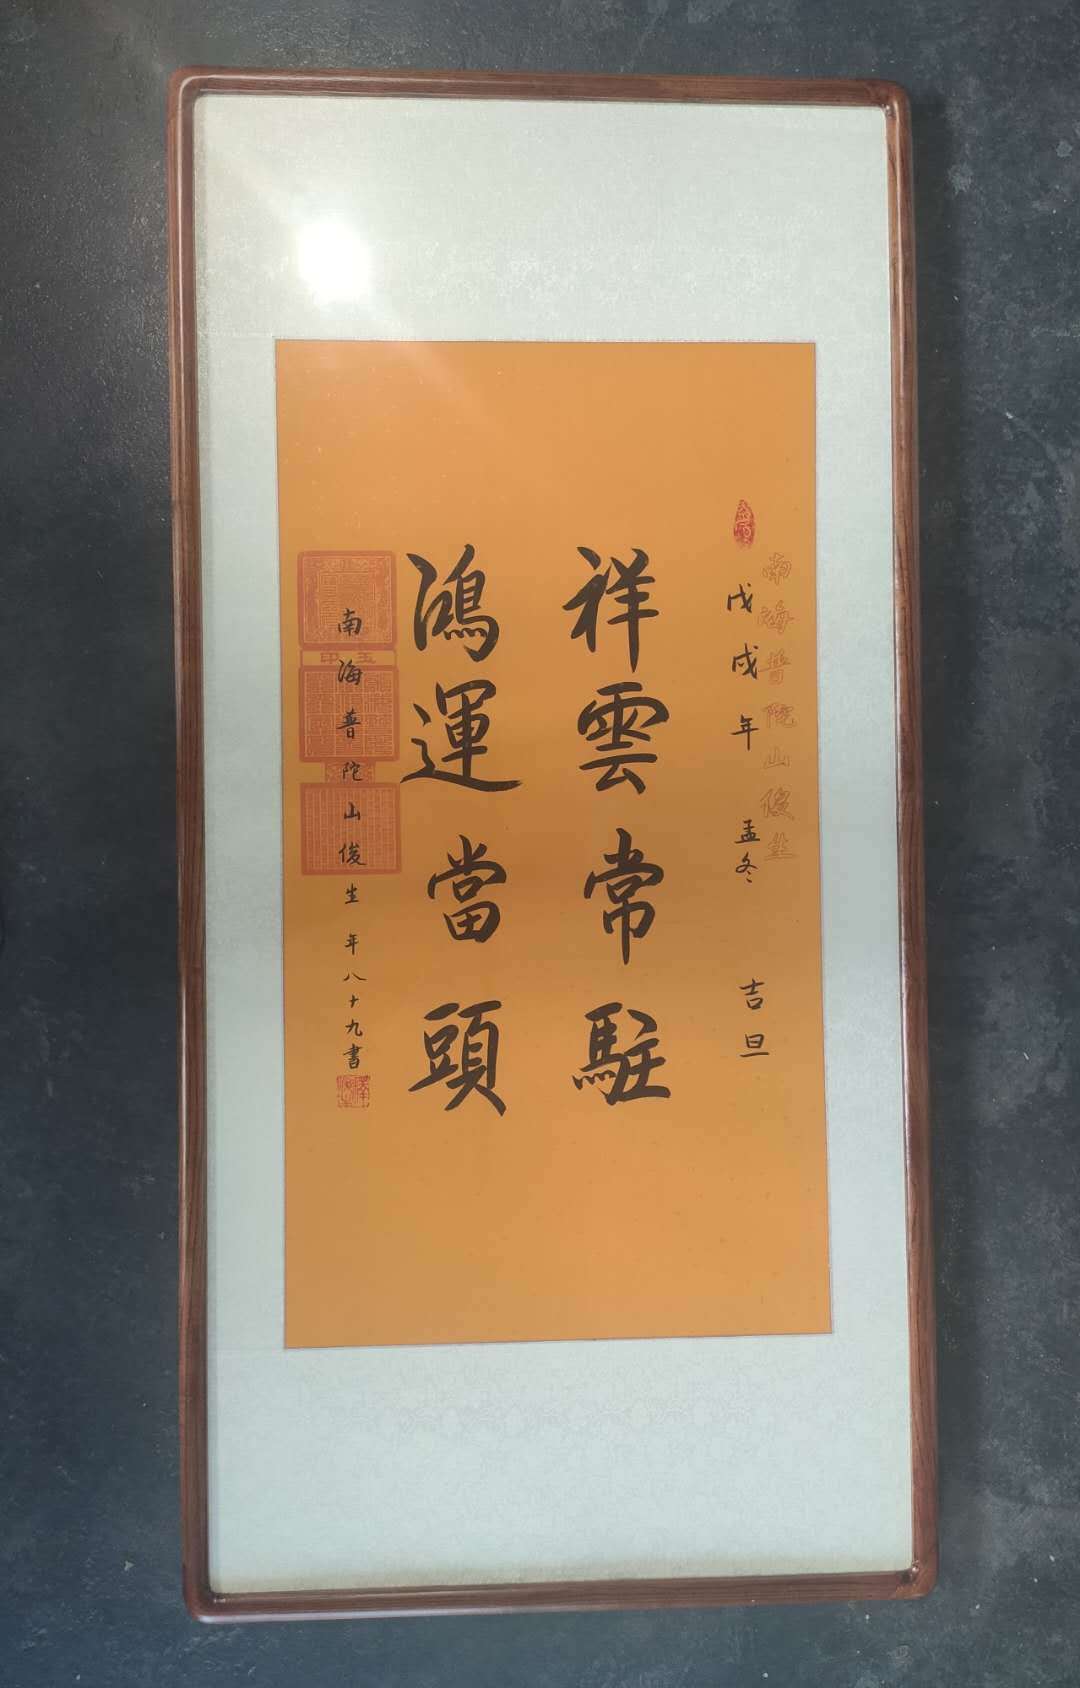 南海普陀山俊生
戊戌年 孟冬 吉旦
祥雲常駐
鴻運當頭
南海普陀山俊生 年八十九書